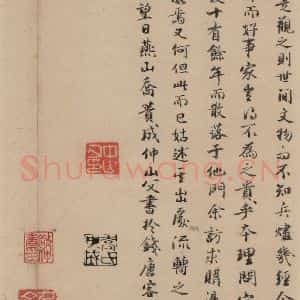 觀之則世間文物不知兵燼幾經
而好事家豈得不為之貴乎本理問
十有餘年而散落于他門余訪求購
焉又何但此而已姑述其出處流轉之
望日燕山喬簣成仲山父書於錢唐客
Shufawang.cn